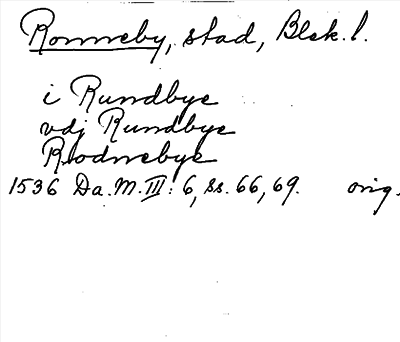 Ronneby, stad, Blek. l.
i Rundbye
vdj Rundbye
Rodnebye
1536 Da. M. III: 6, ss. 66, 69. orig.